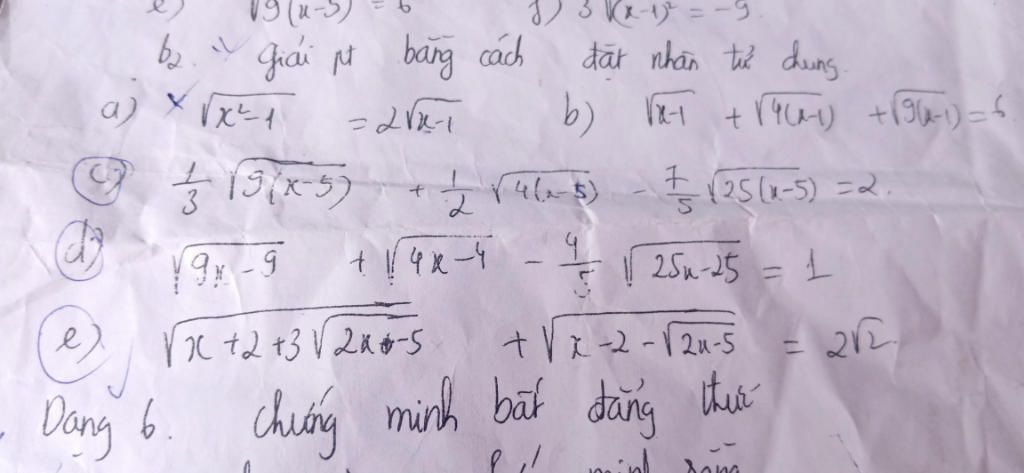 √9(x-5) = 6 f) 3√(x-1)² = -9.
b₂. Giải pt bằng cách đặt nhân tử chung.
a) √x²-1 = 2√x-1 b) √x-1 + √4(x-1) + √9(x-1) = 6
c) 1/3 √9(x-5) + 1/2 √4(x-5) - 7/5 √25(x-5) = 2.
d) √9x-9 + √4x-4 - 4/5 √25x-25 = 1
e) √x+2+3√2x-5 + √x-2-√2x-5 = 2√2.
Dạng 6. Chứng minh bất đẳng thức
minh rằng